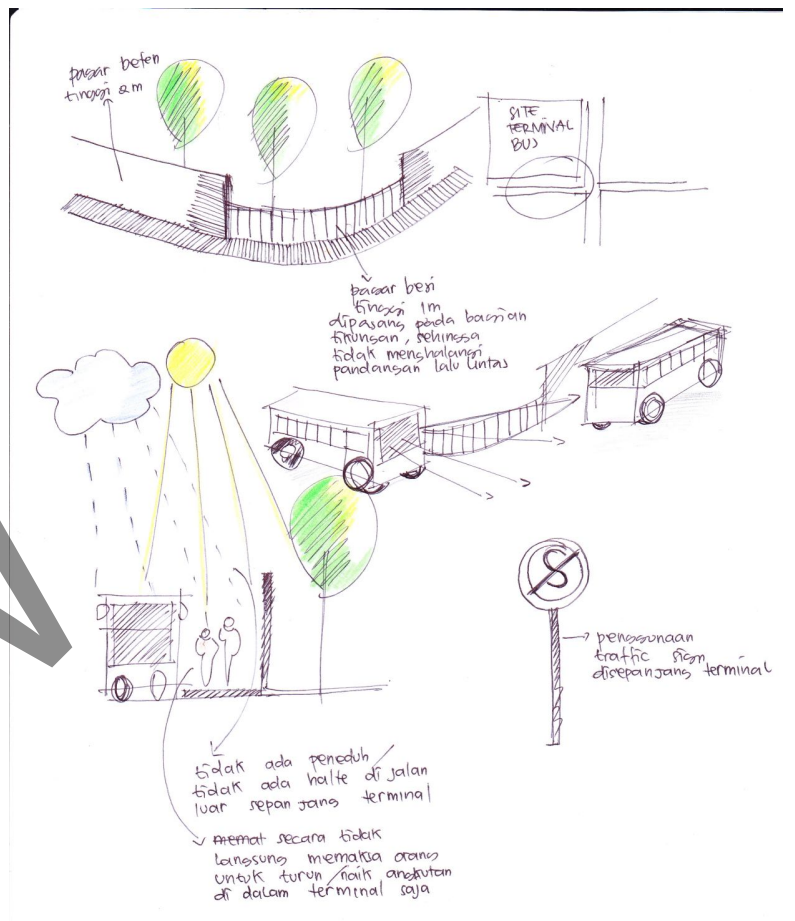 pagar beton
tinggi 2m
SITE
TERMINAL
BUS
pagar besi
tinggi 1m
dipasang pada bagian
tikungan, sehingga
tidak menghalangi
pandangan lalu lintas
S
penggunaan
traffic sign
disepanjang terminal
tidak ada peneduh /
tidak ada halte di jalan
luar sepanjang terminal
memat secara tidak
langsung memaksa orang
untuk turun/naik angkutan
di dalam terminal saja